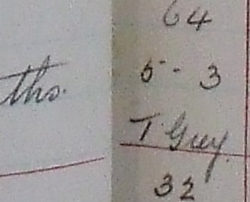 64
ths. 5 - 3
T Guy.
32